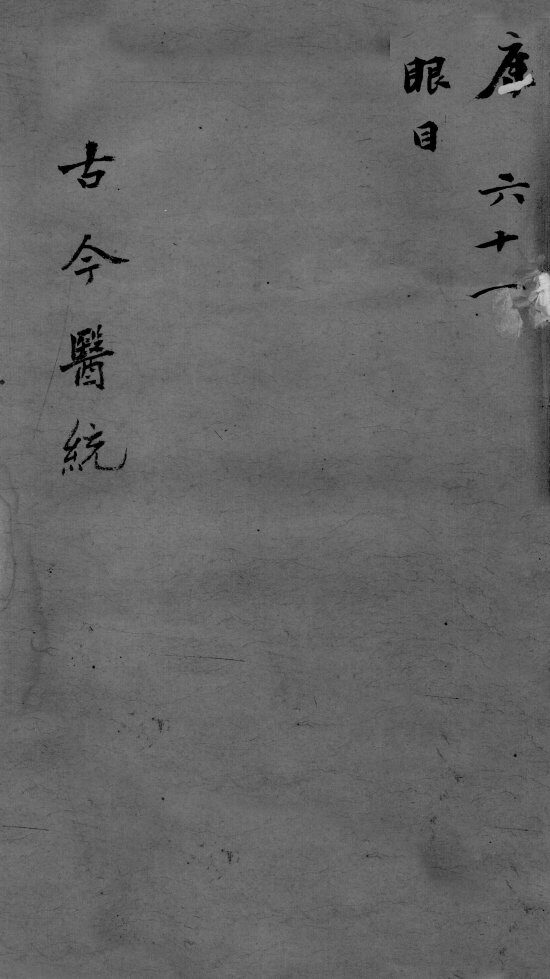 庚 六十一
眼目
古今醫統